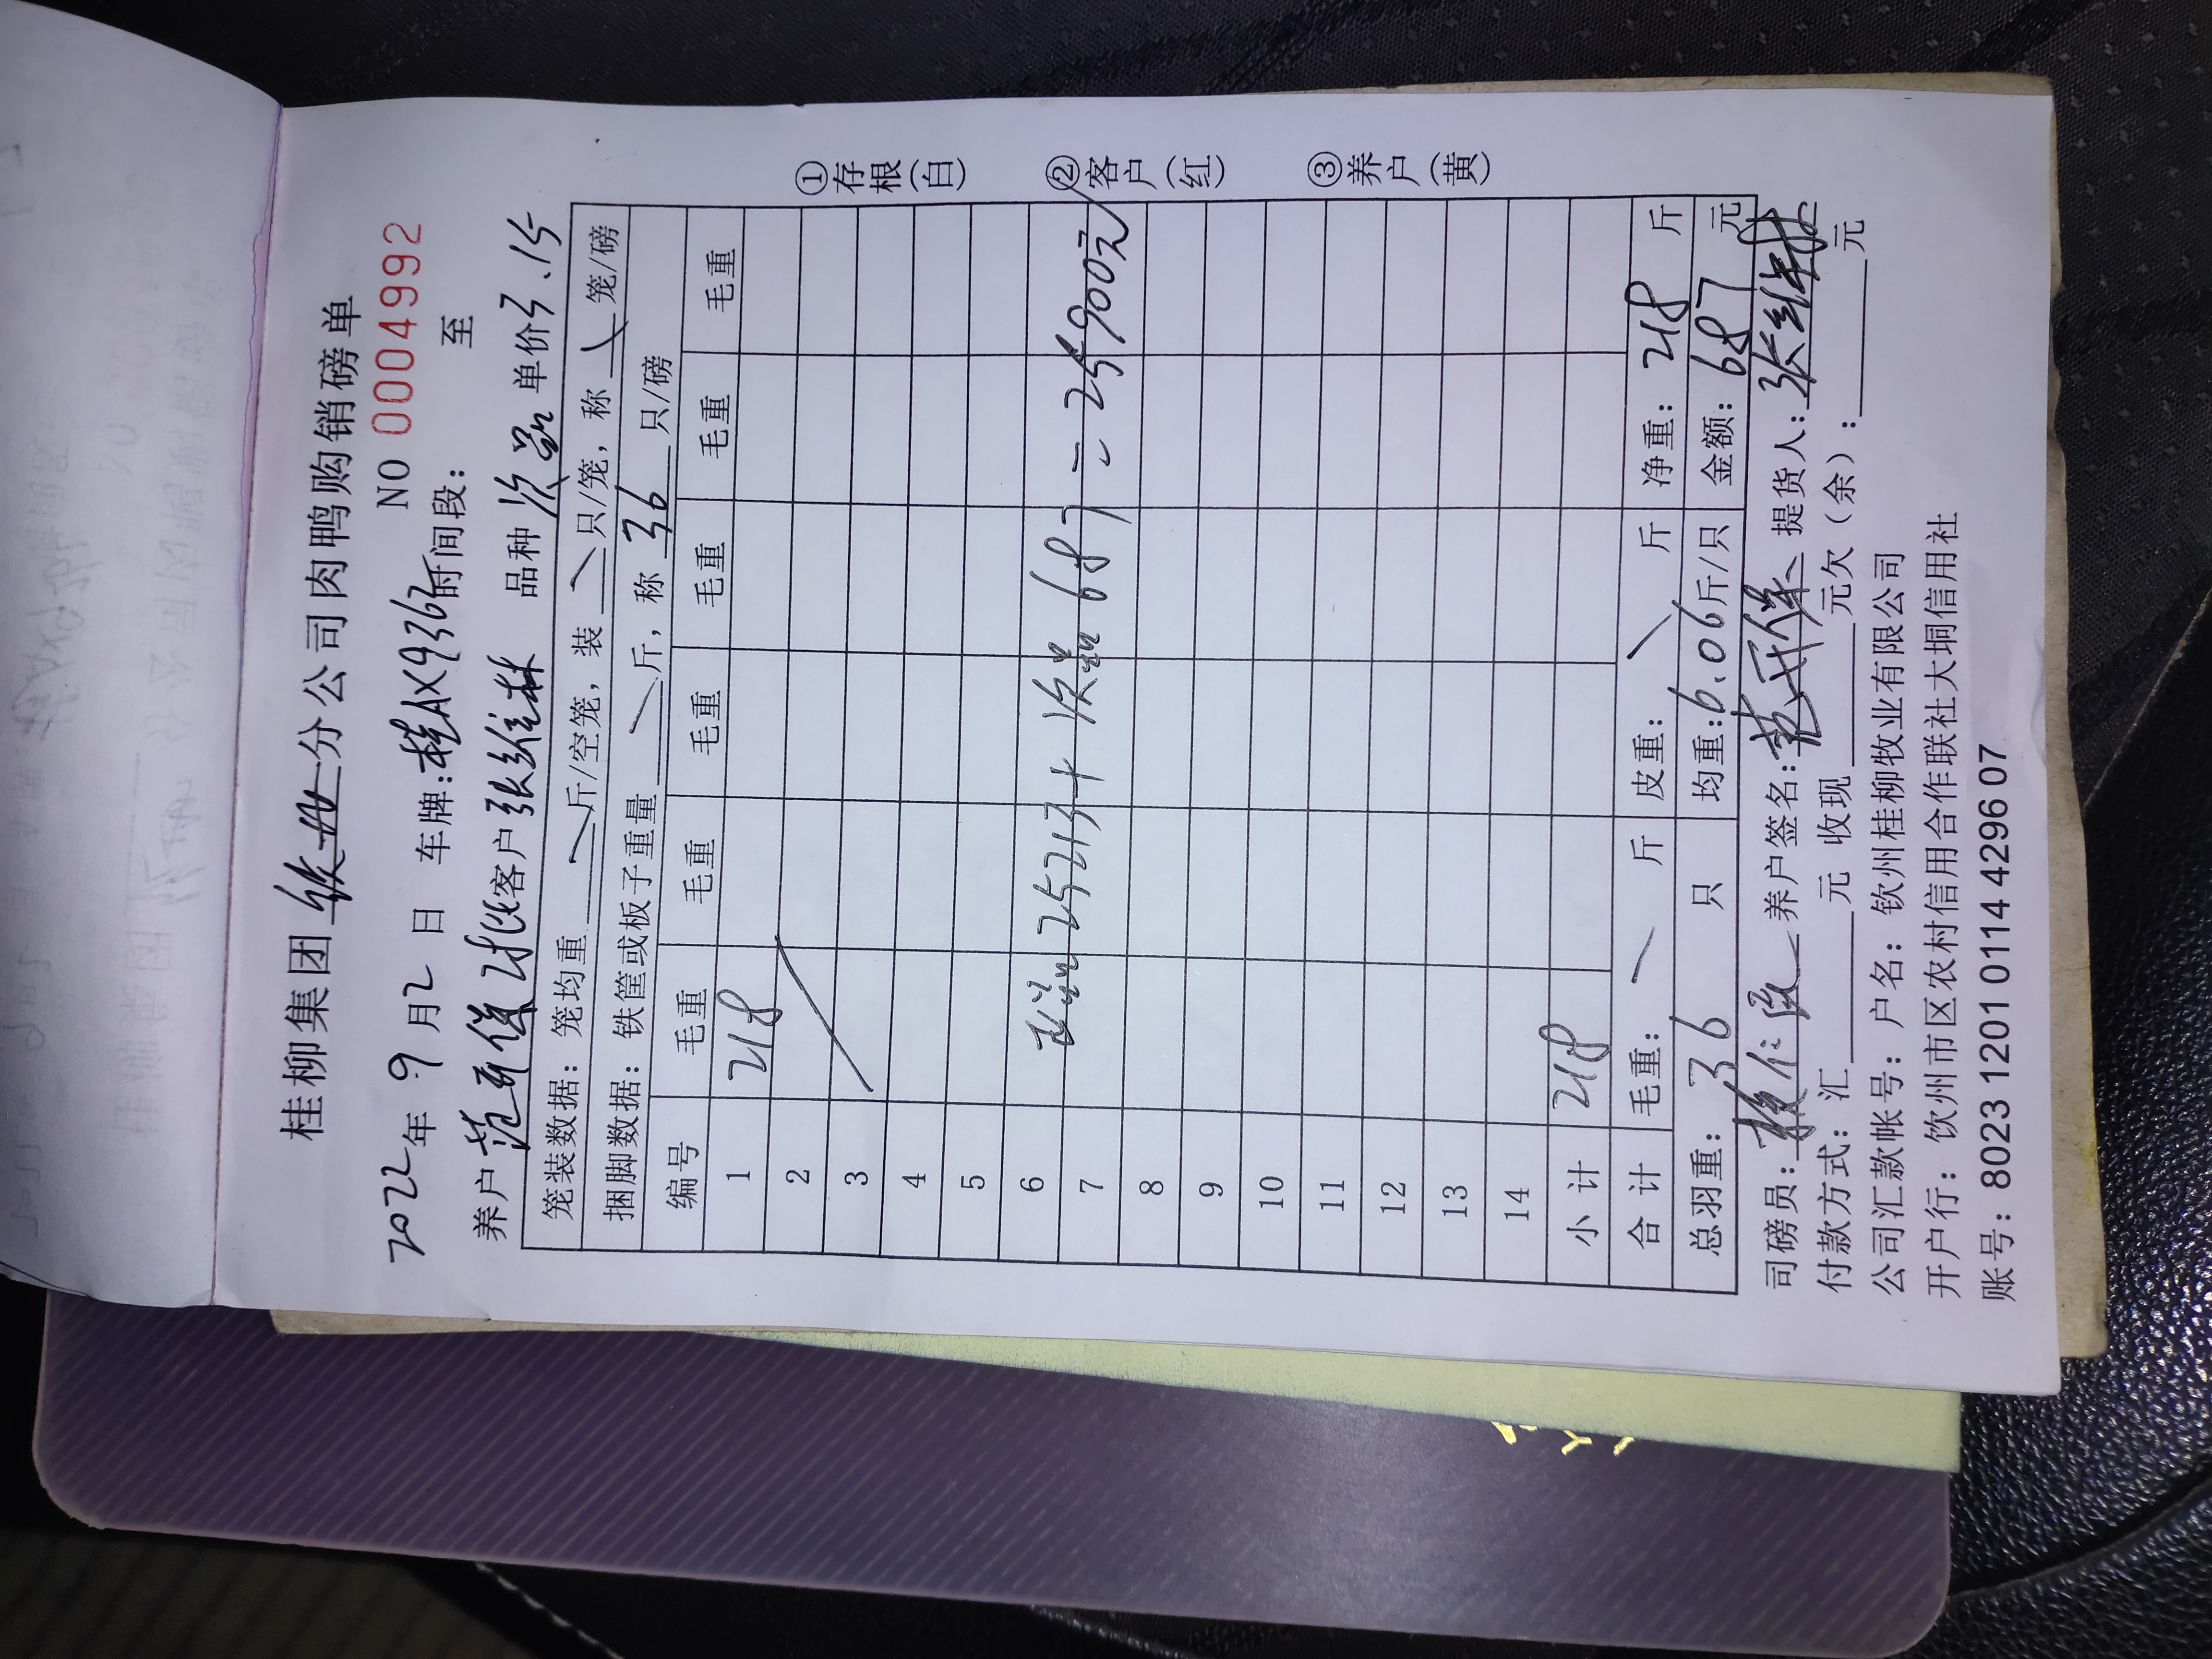 桂柳集团 分公司肉鸭购销磅单
NO 0004992
2022年9月2日 车牌:桂AX936 时间段: 至
养户 范 2批 客户 张维林 品种 次品 单价 3.15
笼装数据: 笼均重 斤/空笼, 装 只/笼, 称 笼/磅
捆脚数据: 铁筐或板子重量 斤, 称 36 只/磅
编号 毛重 毛重 毛重 毛重 毛重 毛重
1 218
2
3
4
5
6
7
正品 25213+次品 687=25900元
8
9
10
11
12
13
14
小计 218
合计 毛重: 斤 皮重: 斤 净重: 218 斤
总羽重: 36 只 均重: 6.06 斤/只 金额: 687 元
司磅员: 养户签名: 提货人: 张维林
付款方式: 汇 元 收现 元欠(余): 元
公司汇款帐号: 户名: 钦州桂柳牧业有限公司
开户行: 钦州市区农村信用合作联社大垌信用社
账号: 8023 1201 0114 4296 07
①存根(白)
②客户(红)
③养户(黄)